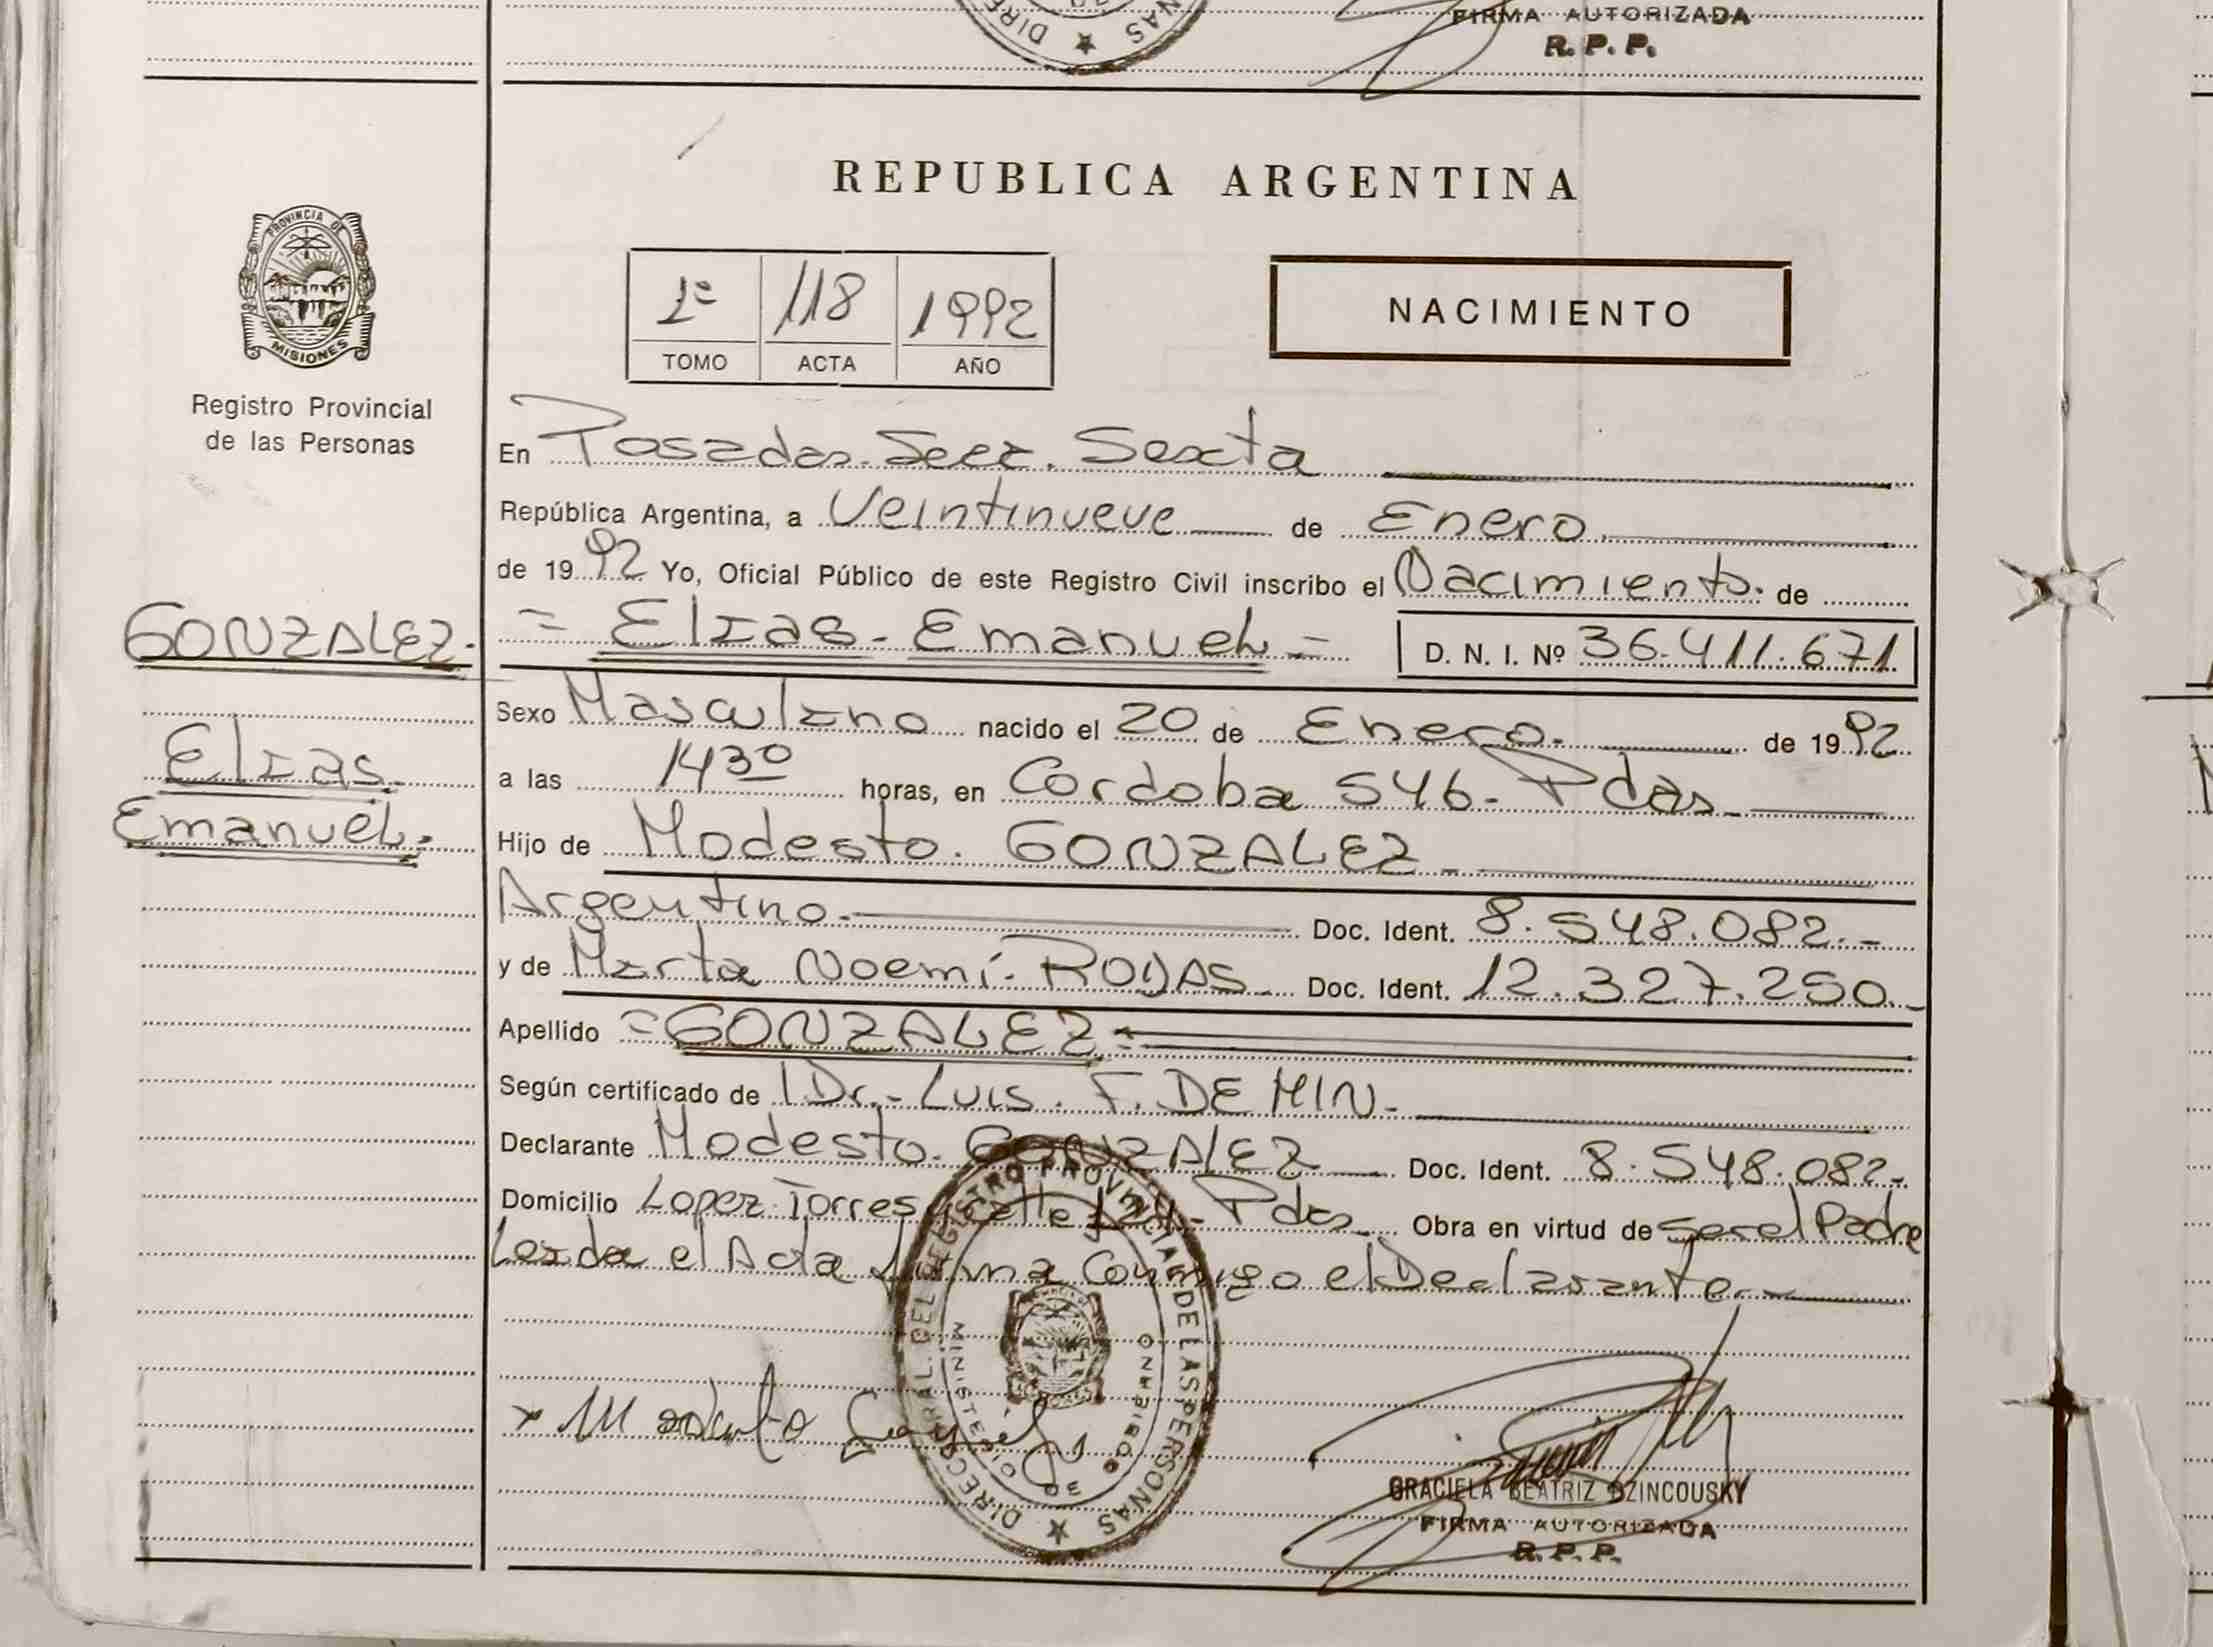 FIRMA AUTORIZADA
R. P. P.
DIRE ★ NAS
REPUBLICA ARGENTINA
PROVINCIA DE
MISIONES
Registro Provincial
de las Personas
1º 118 1992
TOMO ACTA AÑO
NACIMIENTO
En Posadas. Secc. Sexta
República Argentina, a Veintinueve de Enero
de 1992 Yo, Oficial Público de este Registro Civil inscribo el Nacimiento. de
GONZALEZ.
= Elias - Emanuel = D. N. I. Nº 36.411.671
Elias
Emanuel.
Sexo Masculino nacido el 20 de Enero. de 1992
a las 1430 horas, en Cordoba 546 - Pdas
Hijo de Modesto. GONZALEZ
Argentino. Doc. Ident. 8.548.082.-
y de Marta Noemí. ROJAS Doc. Ident. 12.327.250.-
Apellido = GONZALEZ =
Según certificado de Dr. Luis. F. DE MIN.
Declarante Modesto. GONZALEZ Doc. Ident. 8.548.082.-
Domicilio Lopez Torres y calle Pdas Obra en virtud de ser el Padre
Leida el Acta firma Conmigo el Declarante.
DIRECC RAL. DEL REGISTRO PROVINCIAL DE LAS PERSONAS ★
MINISTERIO DE GOBIERNO
GRACIELA BEATRIZ DZINCOUSKY
FIRMA AUTORIZADA
R. P. P.